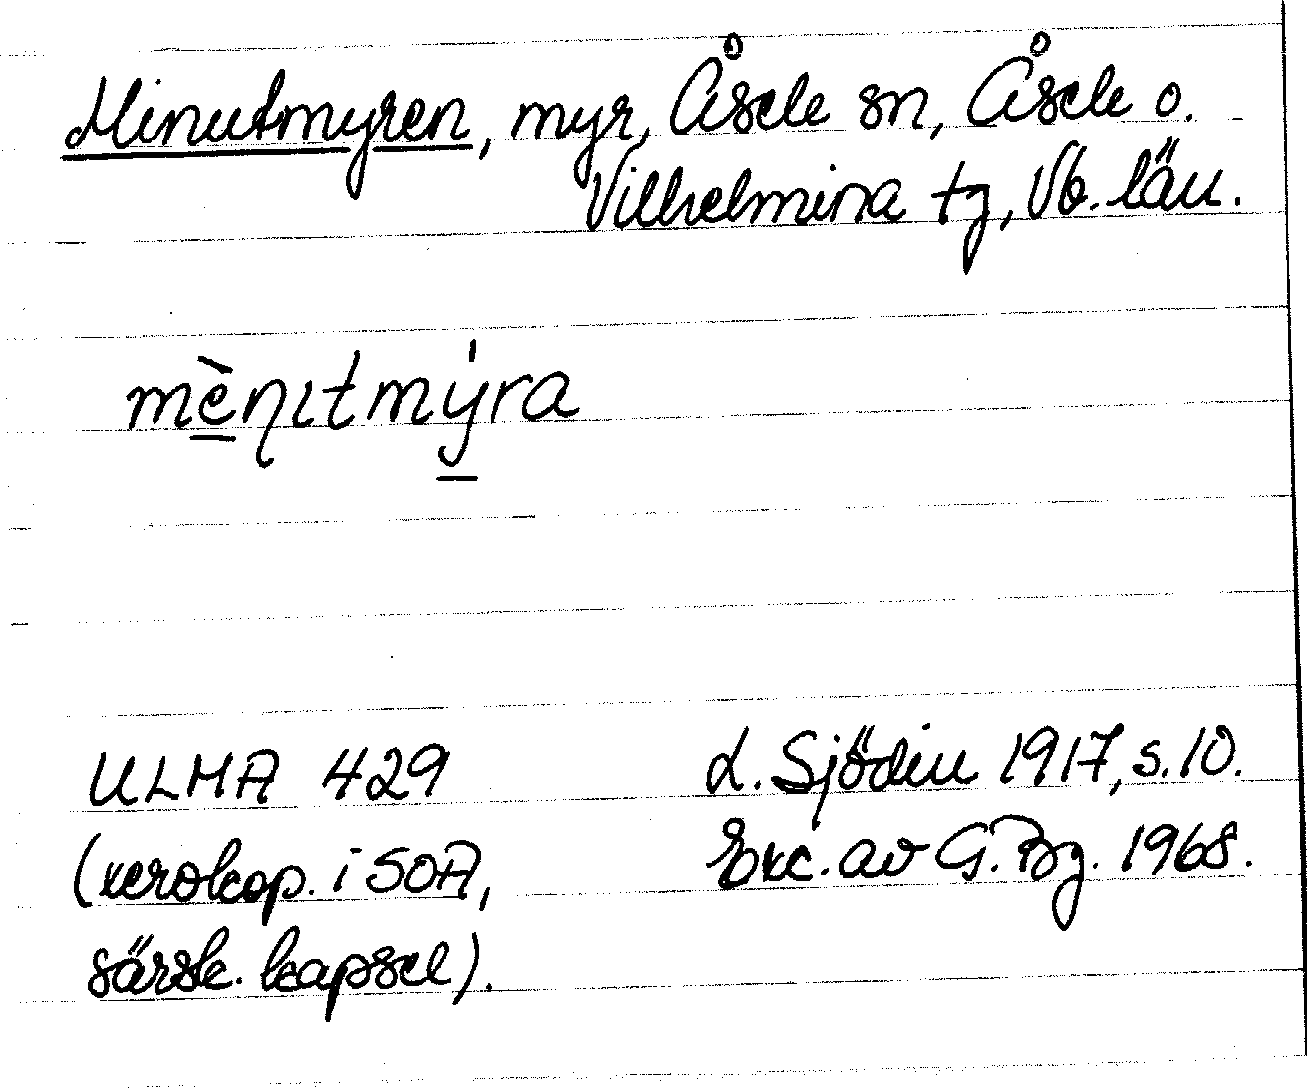 Minutmyren, myr, Åsele sn, Åsele o.
Vilhelmina tg, Vb. län.
mè̱ņıtmý̱ra
ULMA 429
(xerokop. i SOA,
särsk. kapsel).
L. Sjödin 1917, s. 10.
Exc. av G. Bg. 1968.